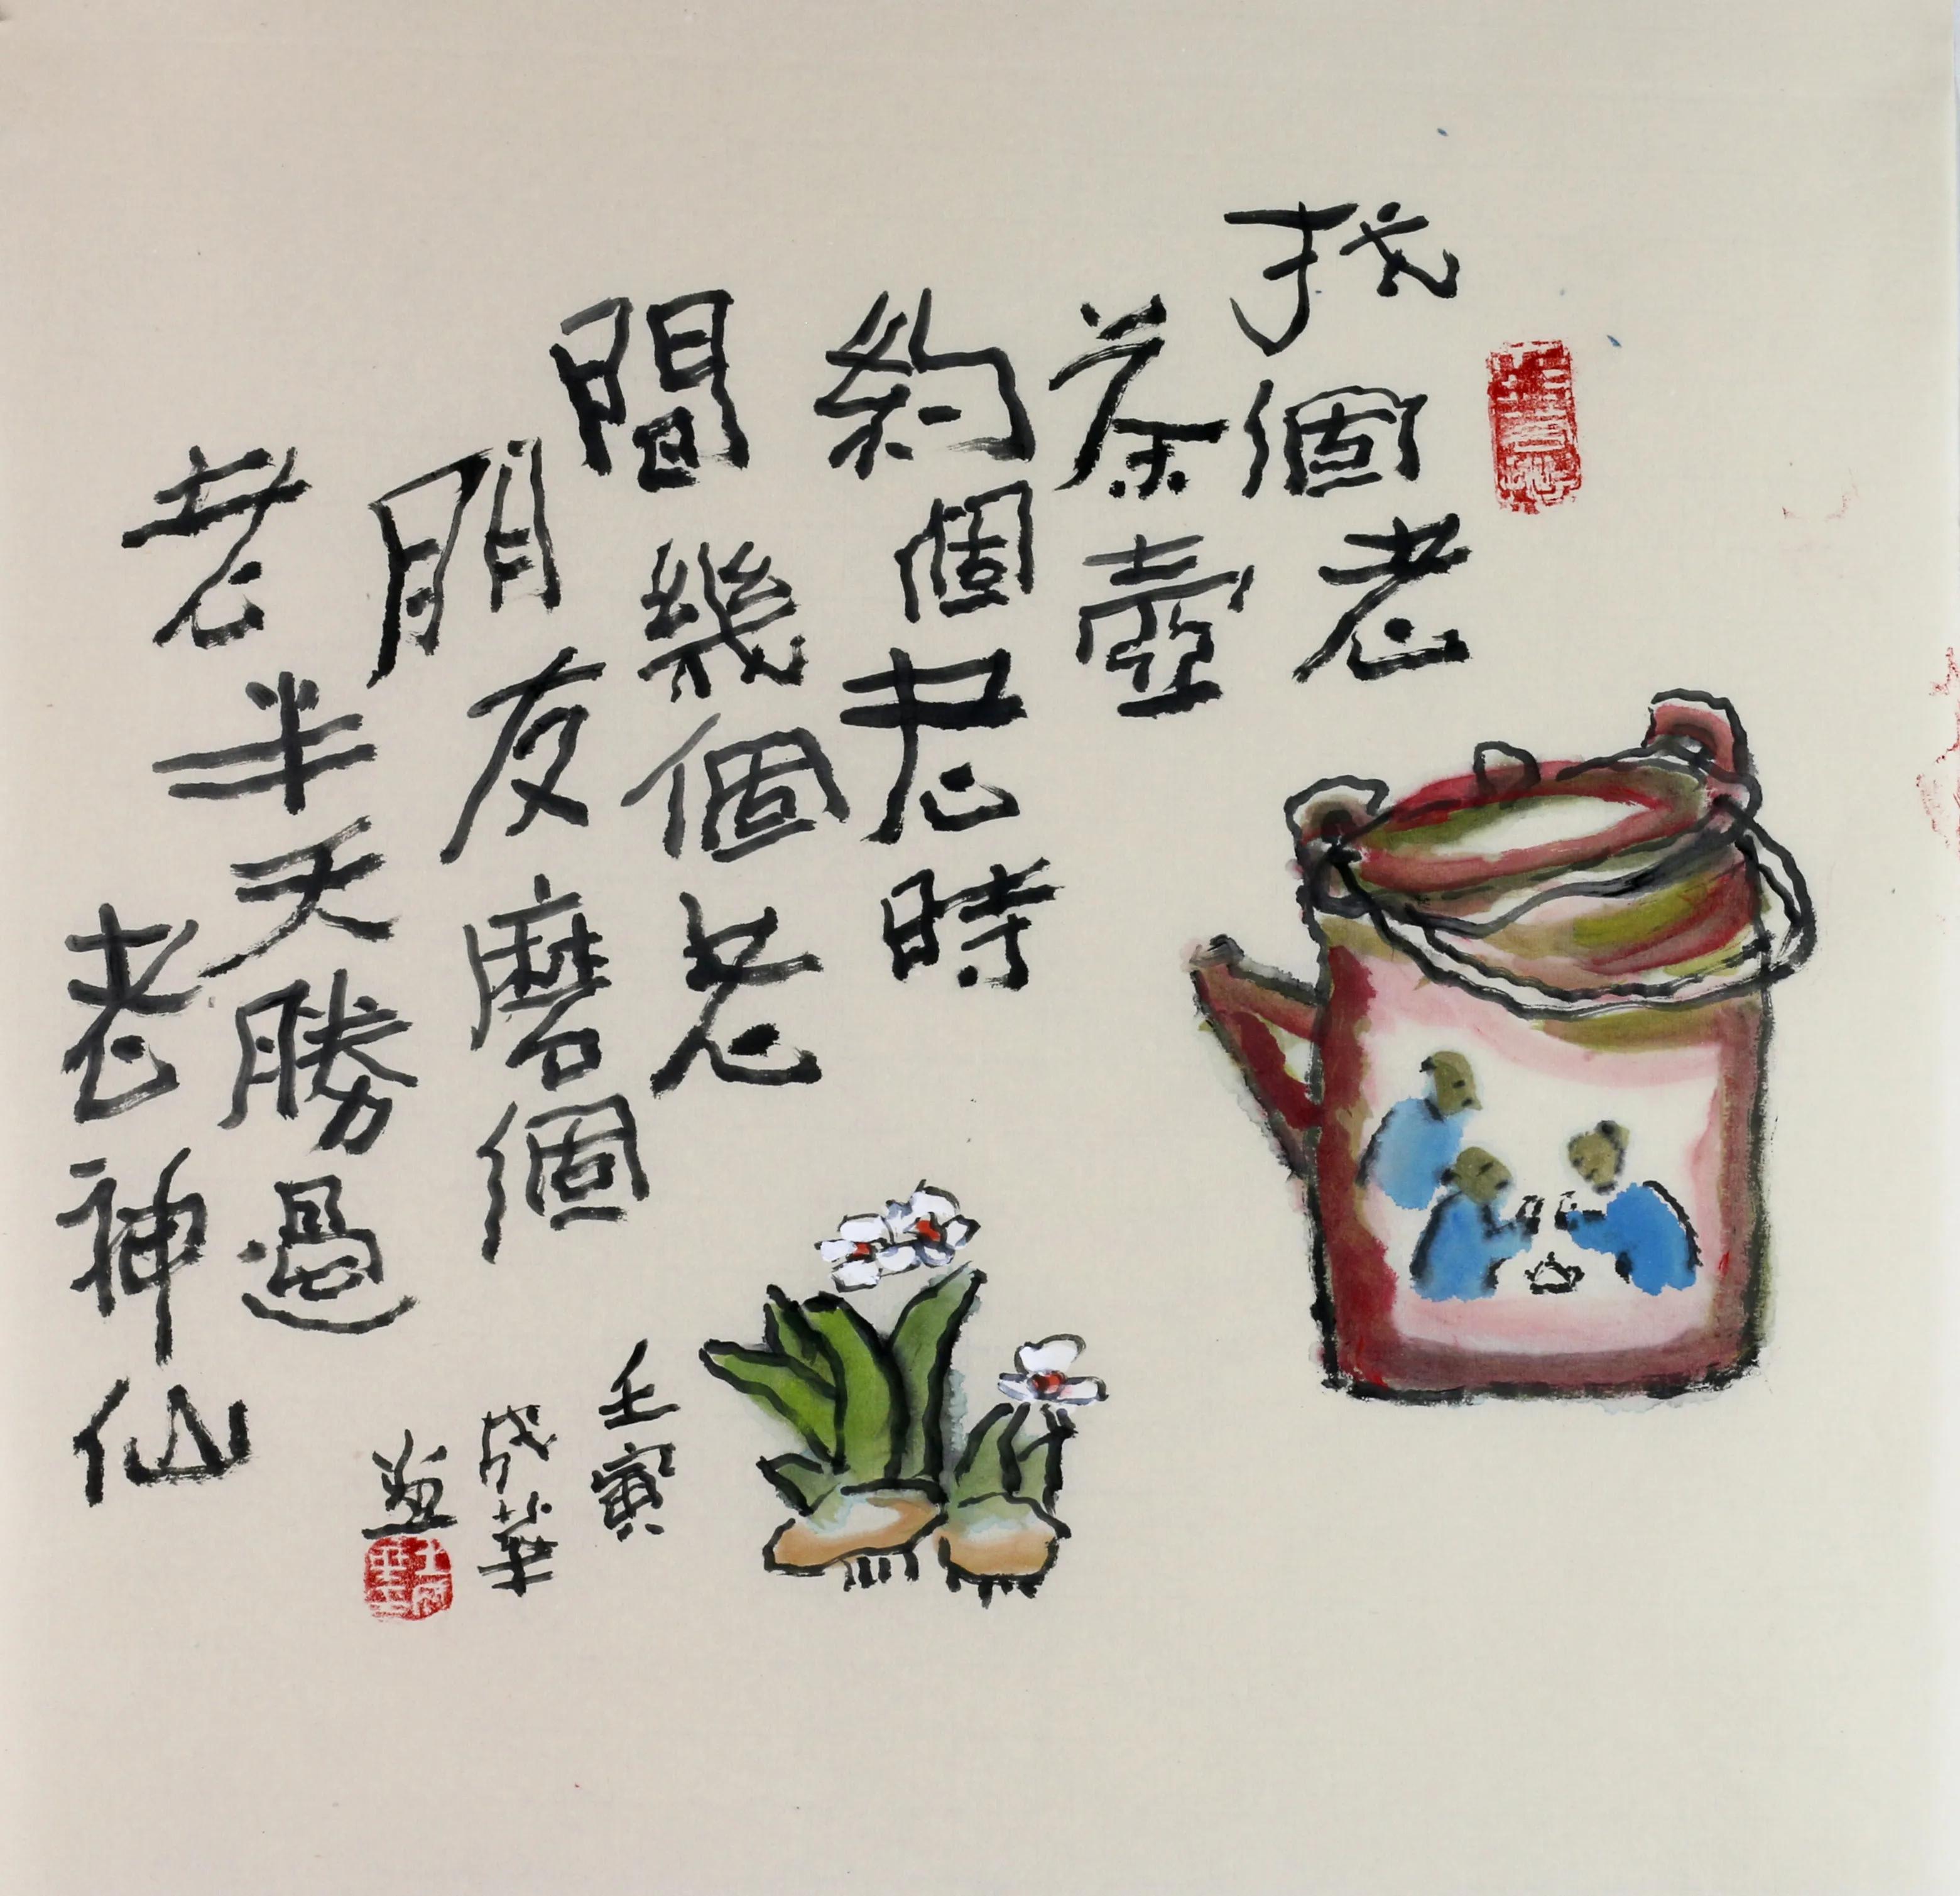 找個老
茶壺
約個老時
間幾個老
朋友磨個
老半天勝過
老神仙
壬寅
成華